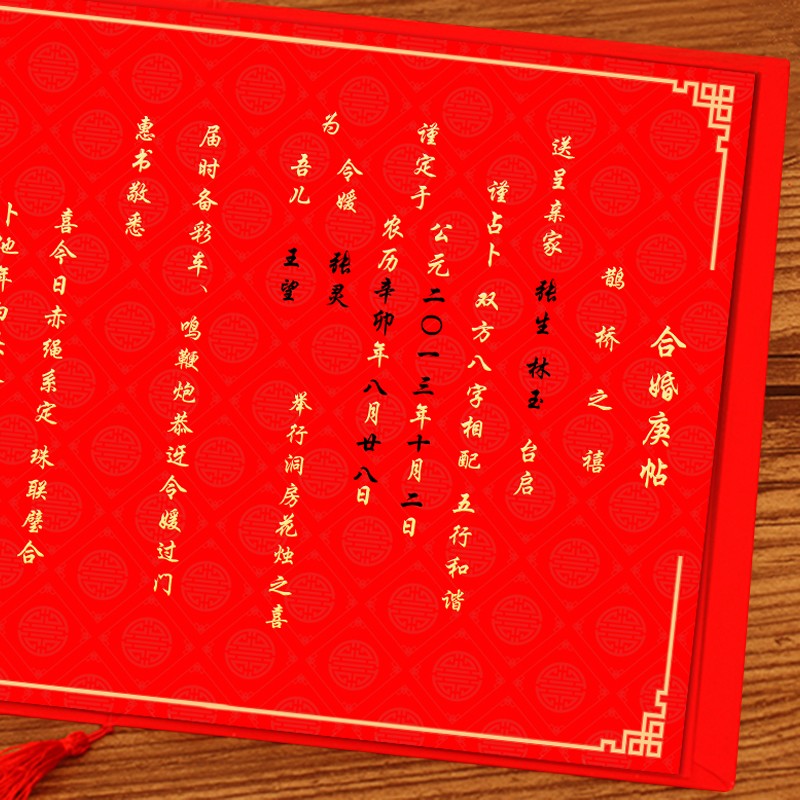 合婚庚帖
鹊桥之禧
送呈亲家 张生 林玉 台启
谨占卜 双方八字相配 五行和谐
谨定于 公元二〇一三年十月二日
农历辛卯年八月廿八日
为
令媛 张灵
吾儿 王望 举行洞房花烛之喜
届时备彩车、鸣鞭炮恭迓令媛过门
惠书敬悉
喜今日赤绳系定 珠联璧合
卜他年